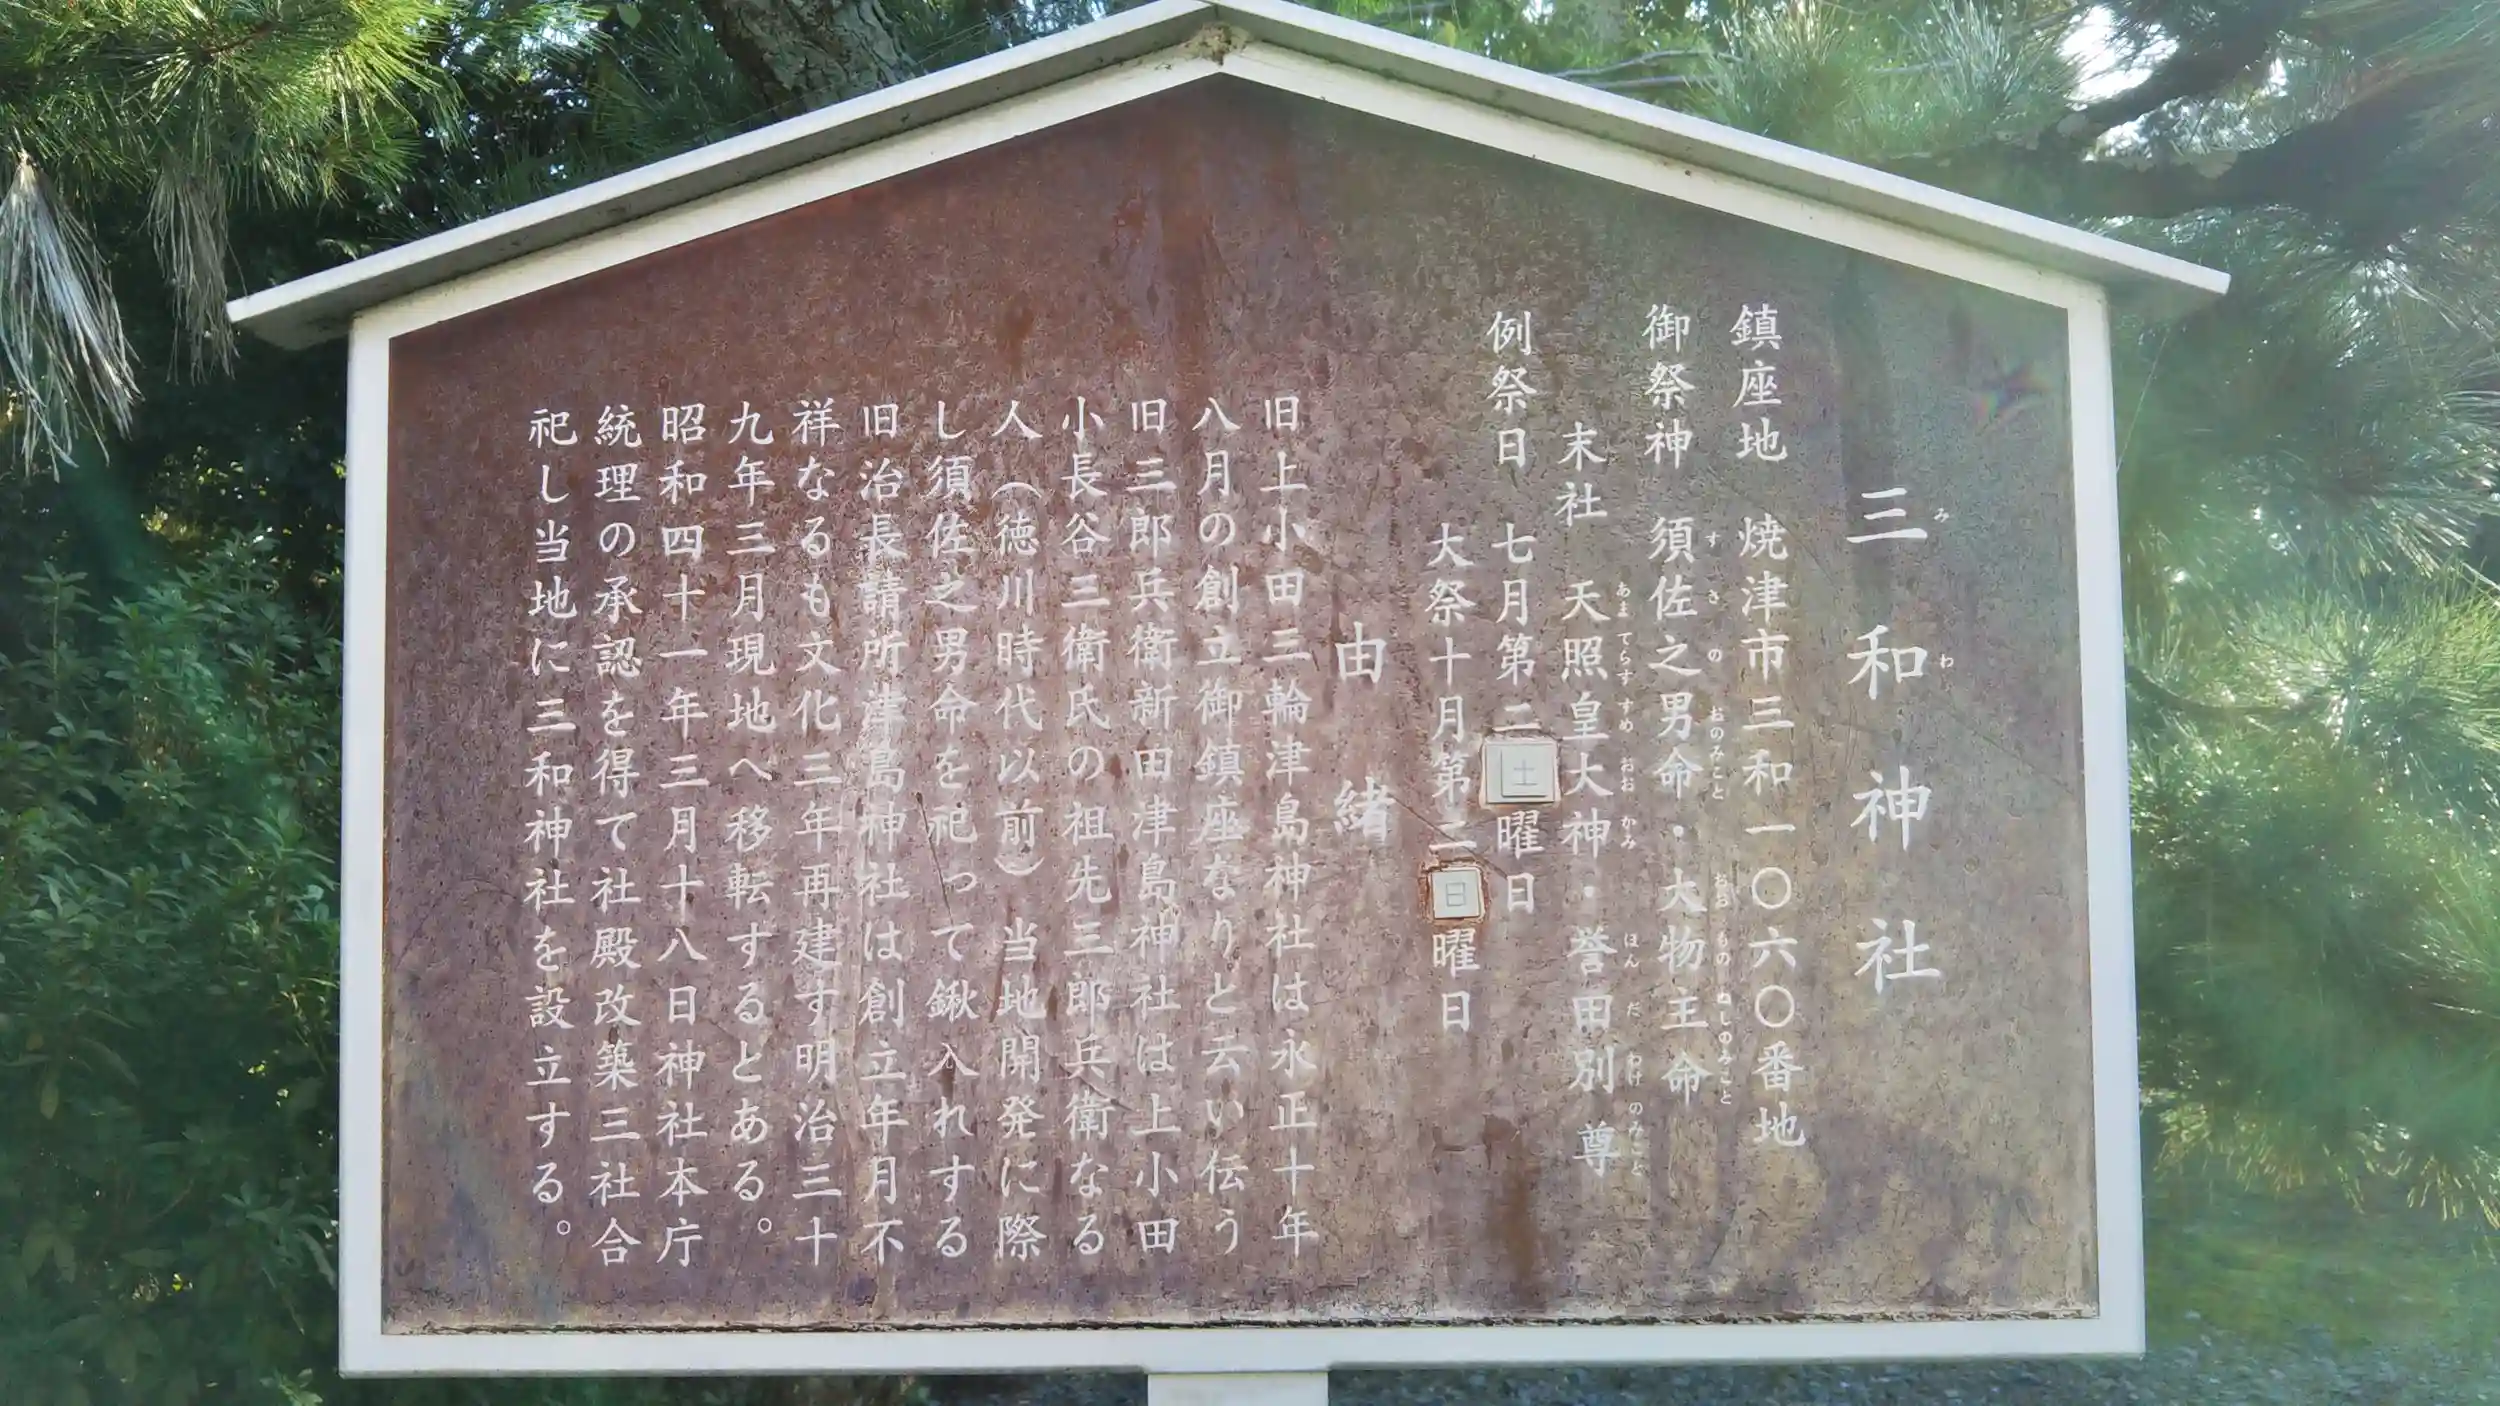 三和神社
みわ
鎮座地　焼津市三和一〇六〇番地
御祭神　須佐之男命・大物主命
すさのおのみこと　おおものぬしのみこと
末社　天照皇大神・誉田別尊
あまてらすすめおおかみ　ほんだわけのみこと
例祭日　七月第二土曜日
大祭十月第二日曜日
由緒
旧上小田三輪津島神社は永正十年
八月の創立御鎮座なりと云い伝う
旧三郎兵衛新田津島神社は上小田
小長谷三衛氏の祖先三郎兵衛なる
人（徳川時代以前）当地開発に際
し須佐之男命を祀って鍬入れする
旧治長請所津島神社は創立年月不
祥なるも文化三年再建す明治三十
九年三月現地へ移転するとある。
昭和四十一年三月十八日神社本庁
統理の承認を得て社殿改築三社合
祀し当地に三和神社を設立する。